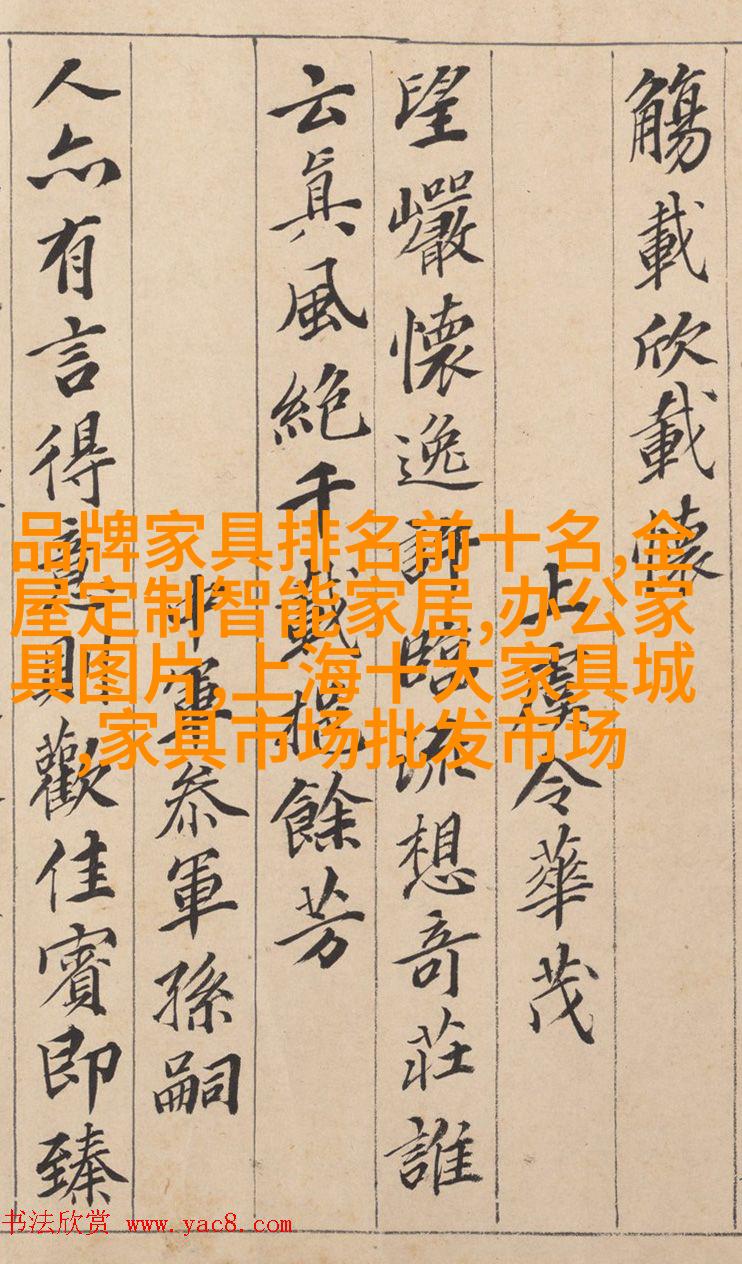 觴載欣載懷
上虞令華茂
望巖懷逸許臨流想奇莊誰
云眞風絶千載挹餘芳
中軍参軍孫嗣
人亦有言得意則歡佳賓即臻
品牌家具排名前十名,全
屋定制智能家居,办公家
具图片,上海十大家具城
,家具市场批发市场
书法欣赏 www.yac8.com